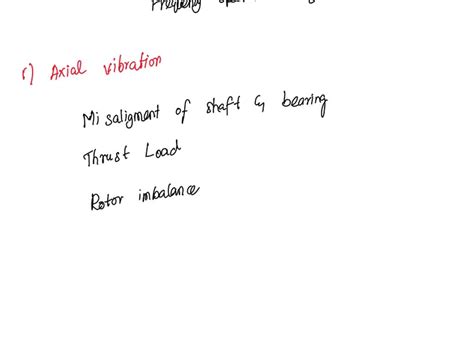 Frequency
8) Axial vibration
Misaligment of shaft & bearing
Thrust Load
Rotor imbalance